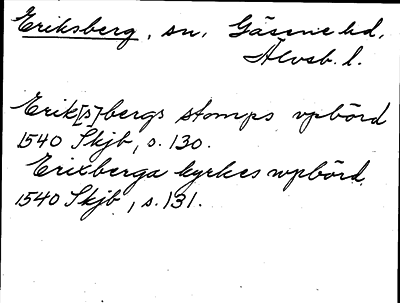 Eriksberg, sn. Gäsene hd,
Älvsb. l.
Erik[s]bergs stomps vpbörd
1540 Skjb, s. 130.
Erixberga kyrkes wpbörd
1540 Skjb, s. 131.